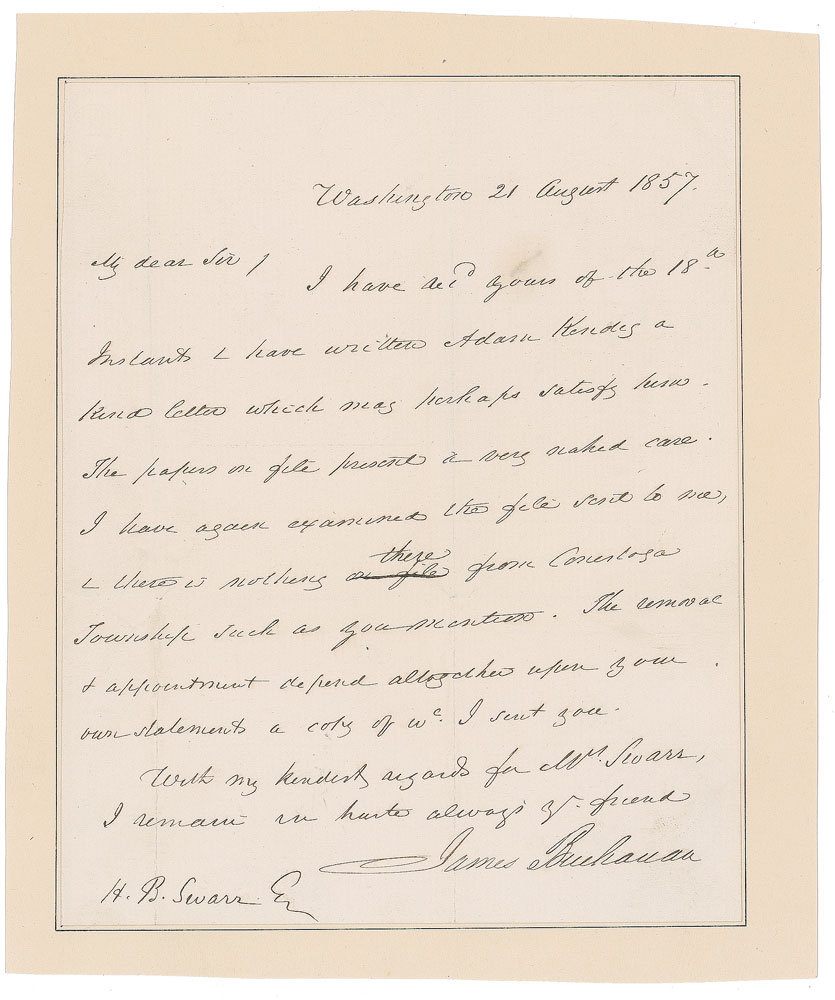 Washington 21 August 1857.
My dear Sir /
I have rec'd yours of the 18th
Instant & have written Adam Kendig a
kind letter which may perhaps satisfy him.
The papers on file present a very naked case.
I have again examined the file sent to me,
& there is nothing there from Conestoga
Township such as you mention. The removal
& appointment depend altogether upon your
own statements a copy of wc. I sent you.
With my kindest regards for Mrs. Swarr,
I remain in haste always yr. friend
James Buchanan
H. B. Swarr Esq